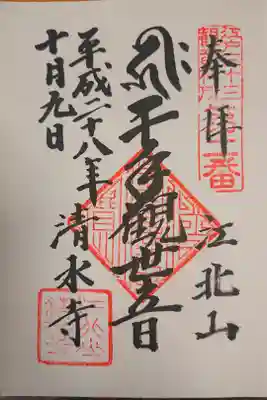 奉拝
江北山
千手觀世音
平成二十八年
十月九日
清水寺